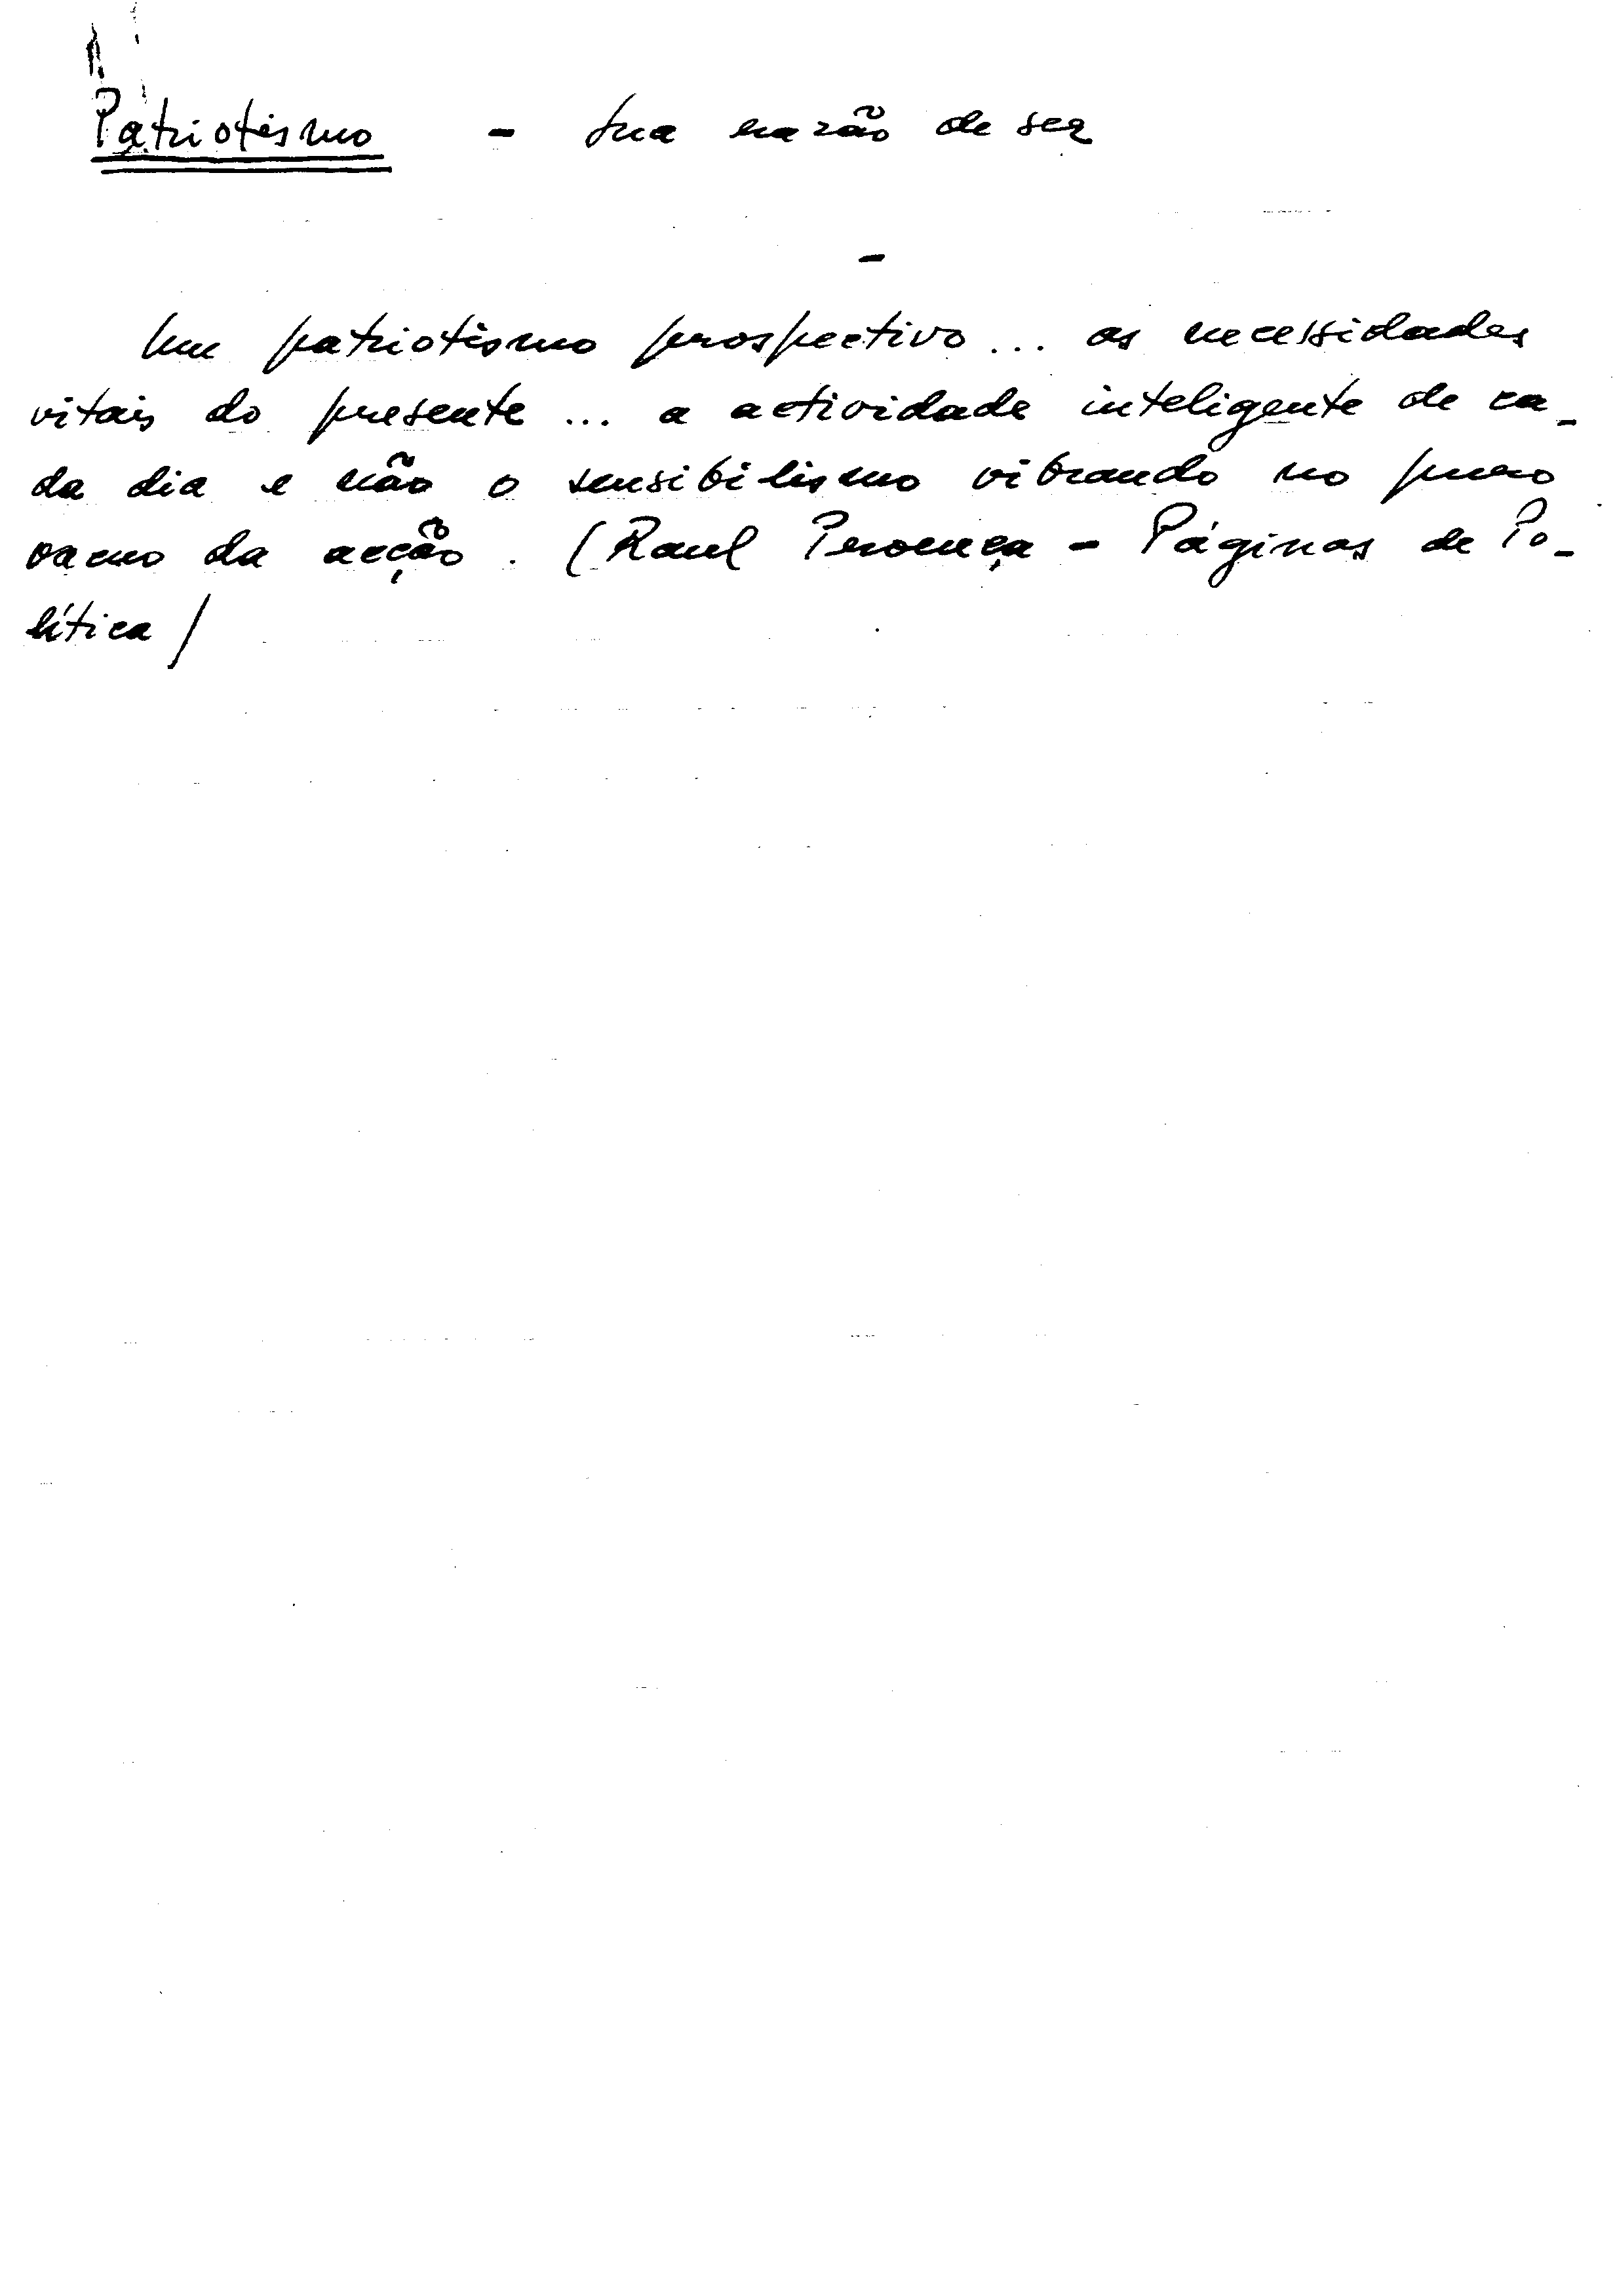 Patriotismo - Sua razão de ser
-
Um patriotismo prospectivo... as necessidades
vitais do presente... a actividade inteligente de ca-
da dia e não o sensibilismo vibrando no puro
vacuo da acção. (Raul Proença - Páginas de Po-
lítica)